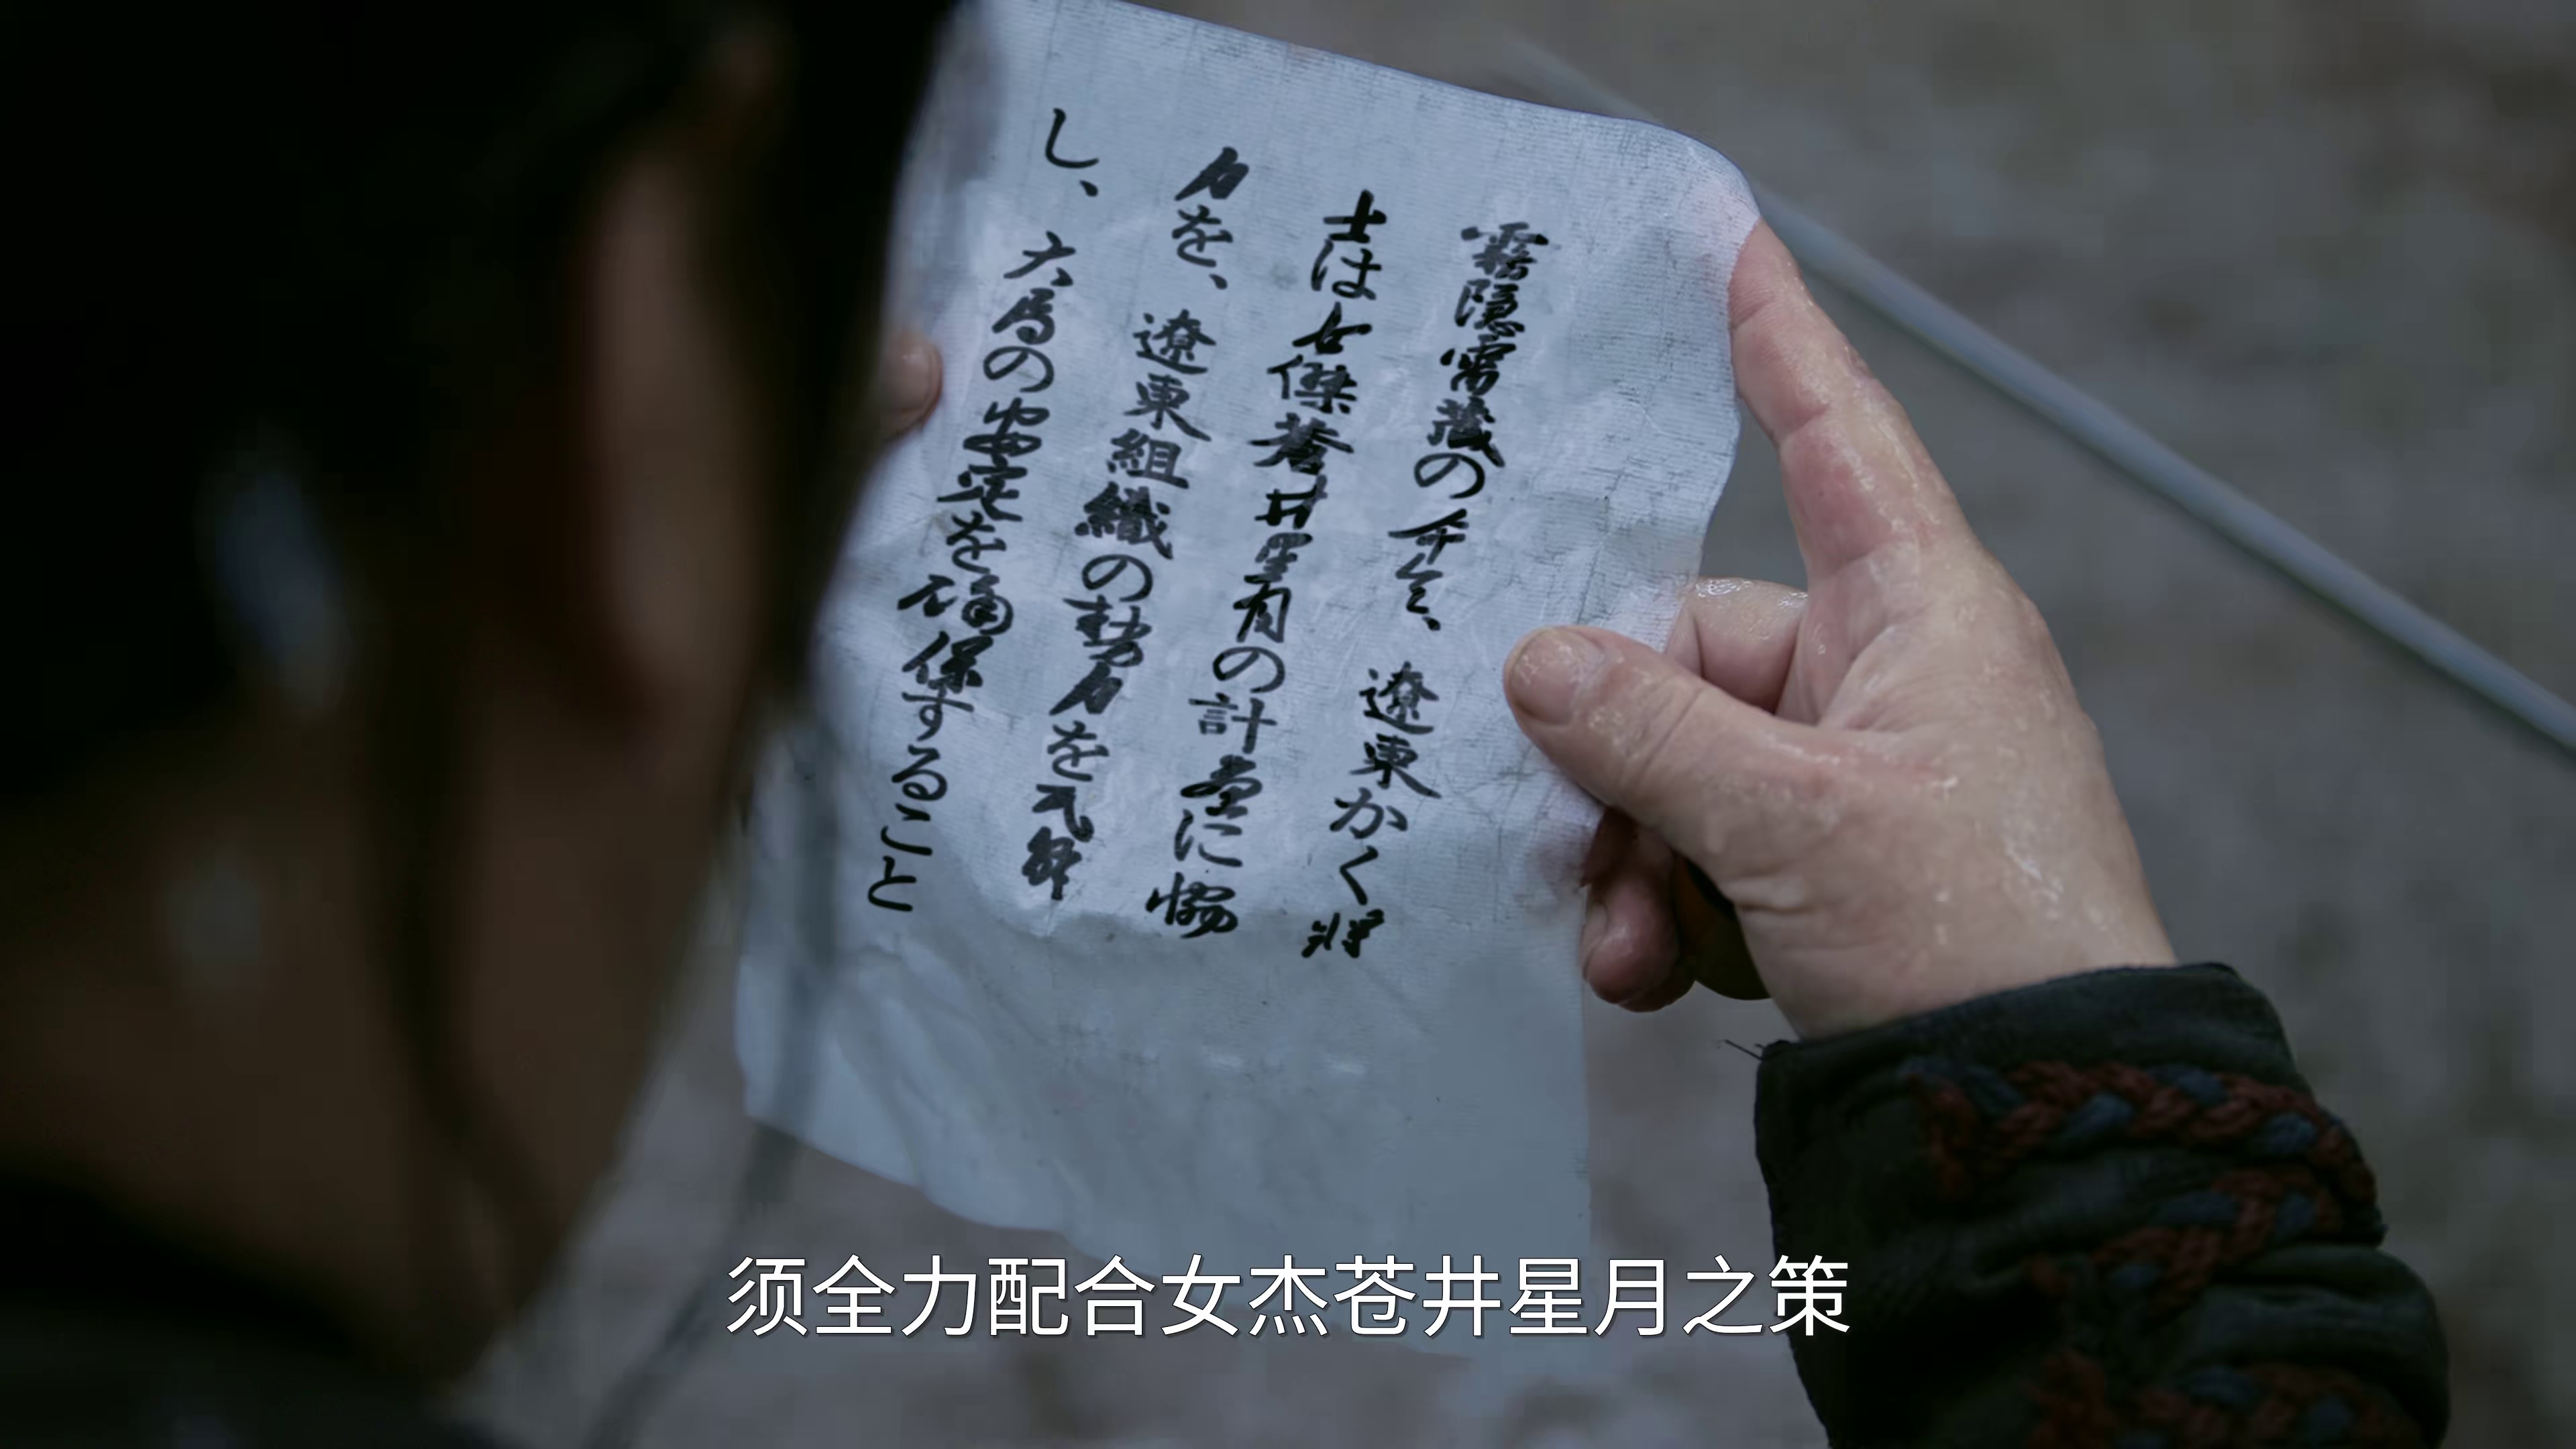 霧隠雷蔵の命令、遼東かく将
士は女傑蒼井星月の計画に協
力を、遼東組織の勢力を瓦解
し、大局の安定を確保すること
须全力配合女杰苍井星月之策